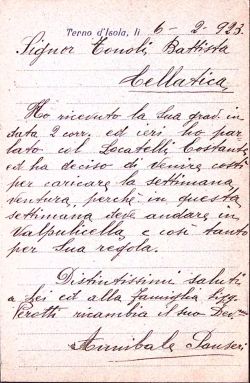 Terno d'Isola, li 6-2-923
Signor Tonoli Battista
Cellatica
Ho ricevuto la Sua grad. in
data 2 corr. ed ieri ho par
lato col Locatelli Costante
ed ha deciso di venire costì
per caricare la settimana
ventura, perchè in questa
settimana deve andare in
Valpulicella e così tanto
per Sua regola.
Distintissimi saluti
a Lei ed alla famiglia Sigg.
Peretti ricambia il suo Dev.mo
Annibale